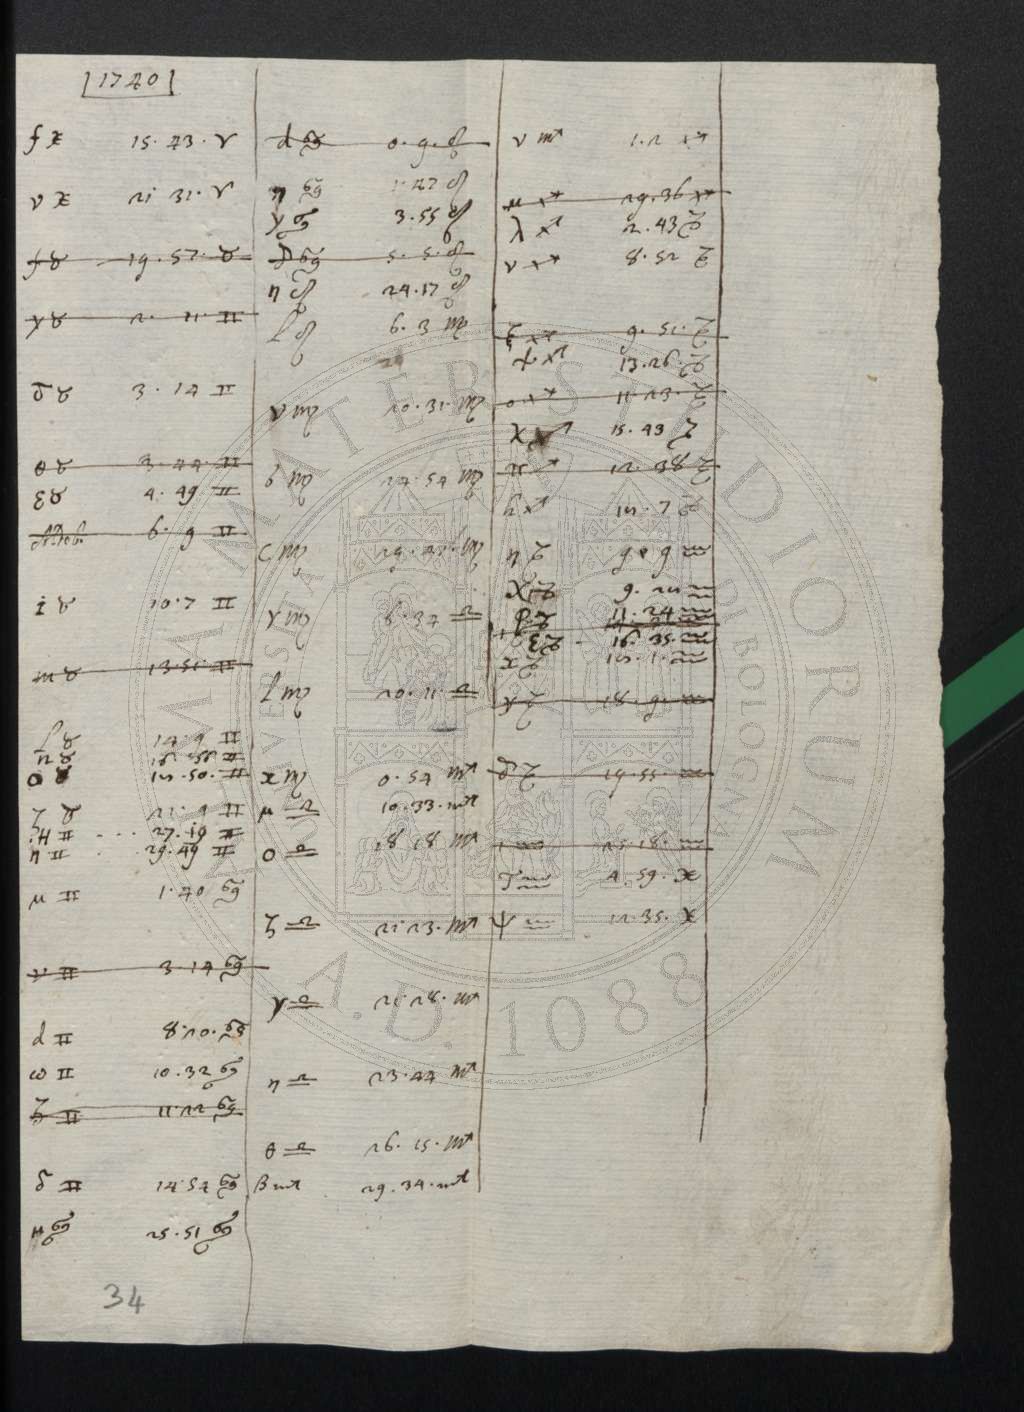 1740
f ♓ 15. 43. ♈
ν ♓ 21 31. ♈
f ♉ 19. 57. ♉
γ ♉ 2. 11. ♊
δ ♉ 3. 14 ♊
θ ♉ 3. 44 ♊
ε ♉ 4. 49 ♊
6. 9 ♊
i ♉ 10. 7 ♊
m ♉ 13. 51. ♊
14. 9 ♊
n ♉ 16. 56 ♊
o ♉ 50. ♊
ζ ♉ 21. 9 ♊
H ♊ 27. 19 ♊
η ♊ 29. 49 ♊
μ ♊ 1. 40 ♋
ν ♊ 3 14 ♋
d ♊ 8. 20. ♋
ω ♊ 10. 32 ♋
ζ ♊ 11. 22 ♋
δ ♊ 14. 54 ♋
♋ 25. 51 ♋
34
d ♋ 0. 9. ♌
η ♋ 1. 47 ♌
γ ♋ 3. 55 ♌
♋ 5. 5. ♌
η ♌ 24. 17 ♌
l ♌ 6. 3 ♍
ν ♍ 20. 31. ♍
b ♍ 24. 54 ♍
c ♍ 29. 47. ♍
γ ♍ 6. 34 ♎
l ♍ 20. 11. ♎
x ♍ 0. 54 ♏
μ ♎ 10. 33. ♏
o ♎ 18 18 ♏
ζ ♎ 21. 23. ♏
γ ♎ 21. 28. ♏
η ♎ 23. 44 ♏
θ ♎ 26. 15. ♏
β ♏ 29. 34. ♏
ν ♏ 1. 2 ♐
μ ♐ 29. 36 ♐
λ ♐ 2. 43 ♑
ν ♐ 8. 52 ♑
ξ ♐ 9. 51. ♑
ψ ♐ 13. 26. ♑
o ♐ 11. 23. ♑
χ ♐ 15. 43 ♑
π ♐ 12. 38 ♑
h ♐ 7 ♑
η ♑ 9 9 ♒
χ ♑ 9. ♒
φ ♑ 11. 24 ♒
ε ♑ 16. 35. ♒
x ♑ 1. ♒
γ ♑ 18. 9. ♒
δ ♑ 19. 55. ♒
ι ♒ 25. 18. ♒
♒ 4. 59. ♓
ψ ♒ 12. 35. ♓
ALMA MATER STUDIORUM
UNIVERSITÀ DI BOLOGNA
A.D. 1088